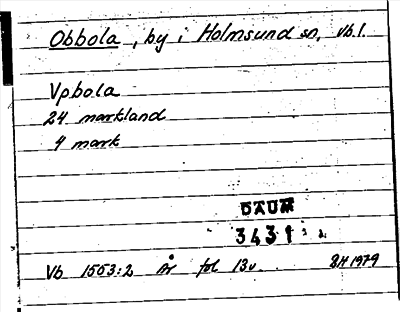 Obbola, by i Holmsund sn, Vb.l.
Vpbola
24 markland
4 mark
DAUM
3431
Vb 1553:2 År fol 13v. BH 1979